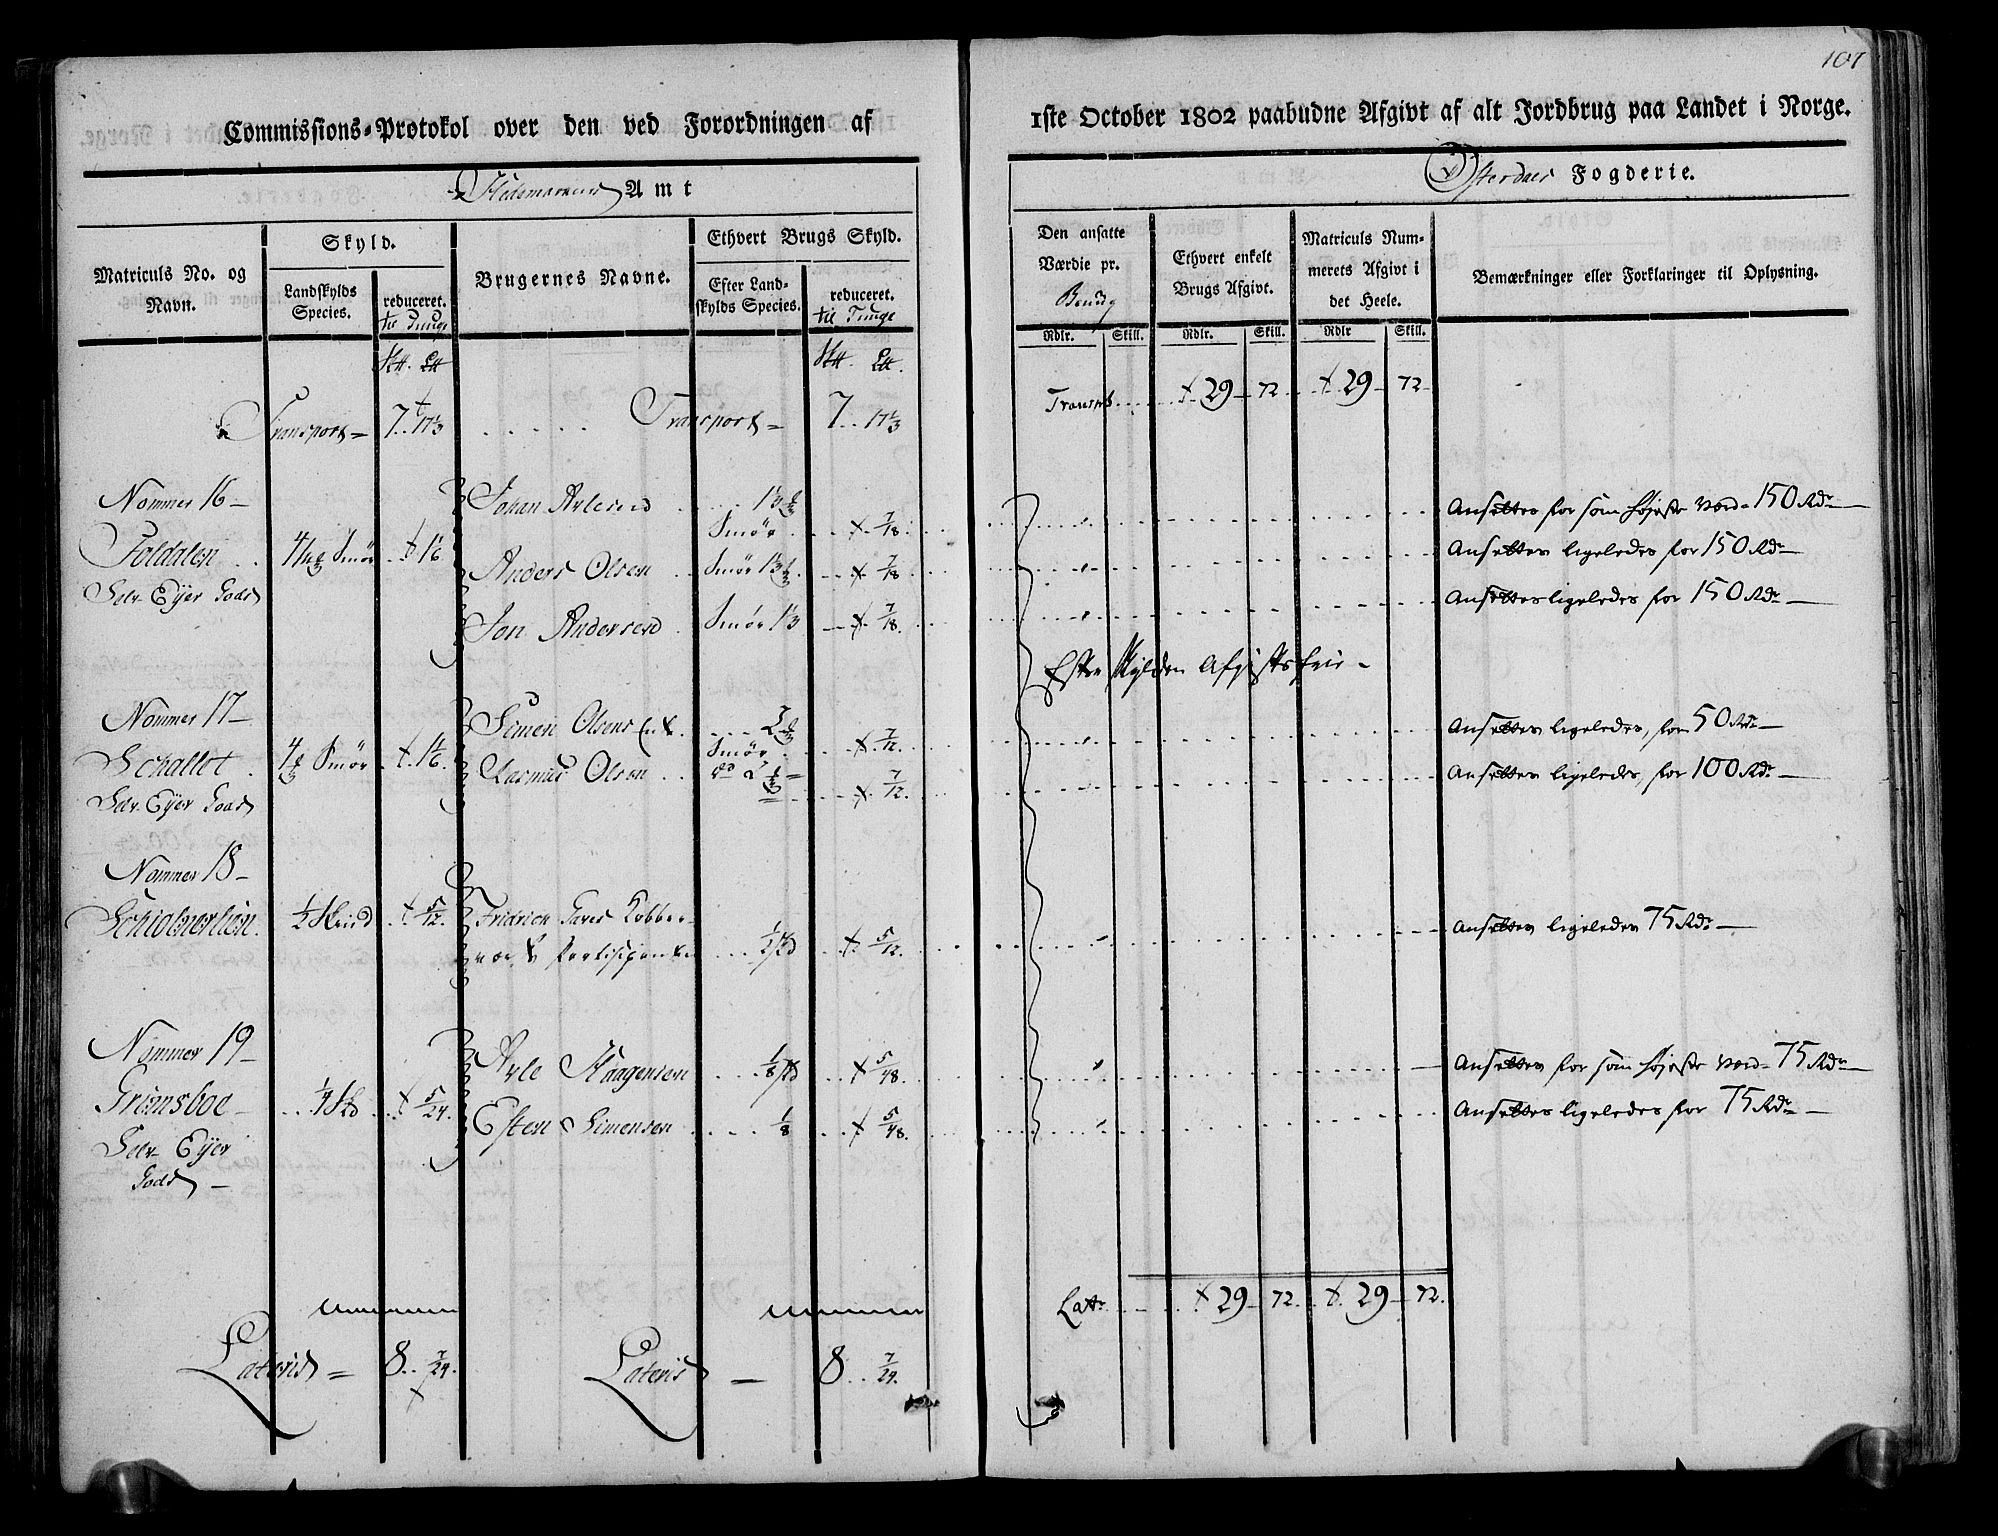 107
Commissions-Protokol over den ved Forordningen af
1ste October 1802 paabudne Afgivt af alt Jordbrug paa Landet i Norge.
Hedemarkens Amt
Østerdals Fogderie.
Matriculs No. og Navn.
Skyld.
Landskylds Species.
reduceret. til Tunge
Brugernes Navne.
Ethvert Brugs Skyld.
Efter Landskylds Species.
reduceret. til Tunge
Den ansatte Værdie pr.
Rdlr. Skill.
Ethvert enkelt Brugs Afgivt.
Rdlr. Skill.
Matriculs Nummerets Afgivt i det Heele.
Rdlr Skill.
Bemærkninger eller Forklaringer til Oplysning.
Transport = 7.. 17⅓ Transport = 7.. 17⅓
29 72 29 72
Nommer 16
Foldalen
Smør
Selv Eyer Gods
Johan Arlesend
Smør 7/18
Ansættes for som høyeste Værd 150 Rdr
Anders Olsen Smør 7/18
Ansættes ligeledes for 150 Rdr
Jon Andersend Smør 7/18.
Ansættes ligeledes for 150 Rdr
Efter Skylden Afgiftsfrie
Nommer 17
Schallet Smør
Selv Eyer Gods
Simen Olsens
Smør 7/12.
Ansættes ligeledes, for 50 Rdr
Rasmus Olsen 7/12.
Ansættes ligeledes, for 100 Rdr
Nommer 18
½ Hud 5/12.
Fridrich Gaves Kobber-
værk Participanter ½ Hd 5/12.
Ansættes ligeledes 75 Rdr
Nommer 19
Grimsboe ¼ Hd 5/24.
Selv Eyer
Gods
Arle Haagensen ⅛ Hd 5/48.
Ansættes for som høyeste Værd 75 Rdr
Esten Simensen ⅛ 5/48.
Ansættes ligeledes for 75 Rdr
Lateris = 8.. 7/24. Lateris 8.. 7/24.
Latr 29 72. 29 72.